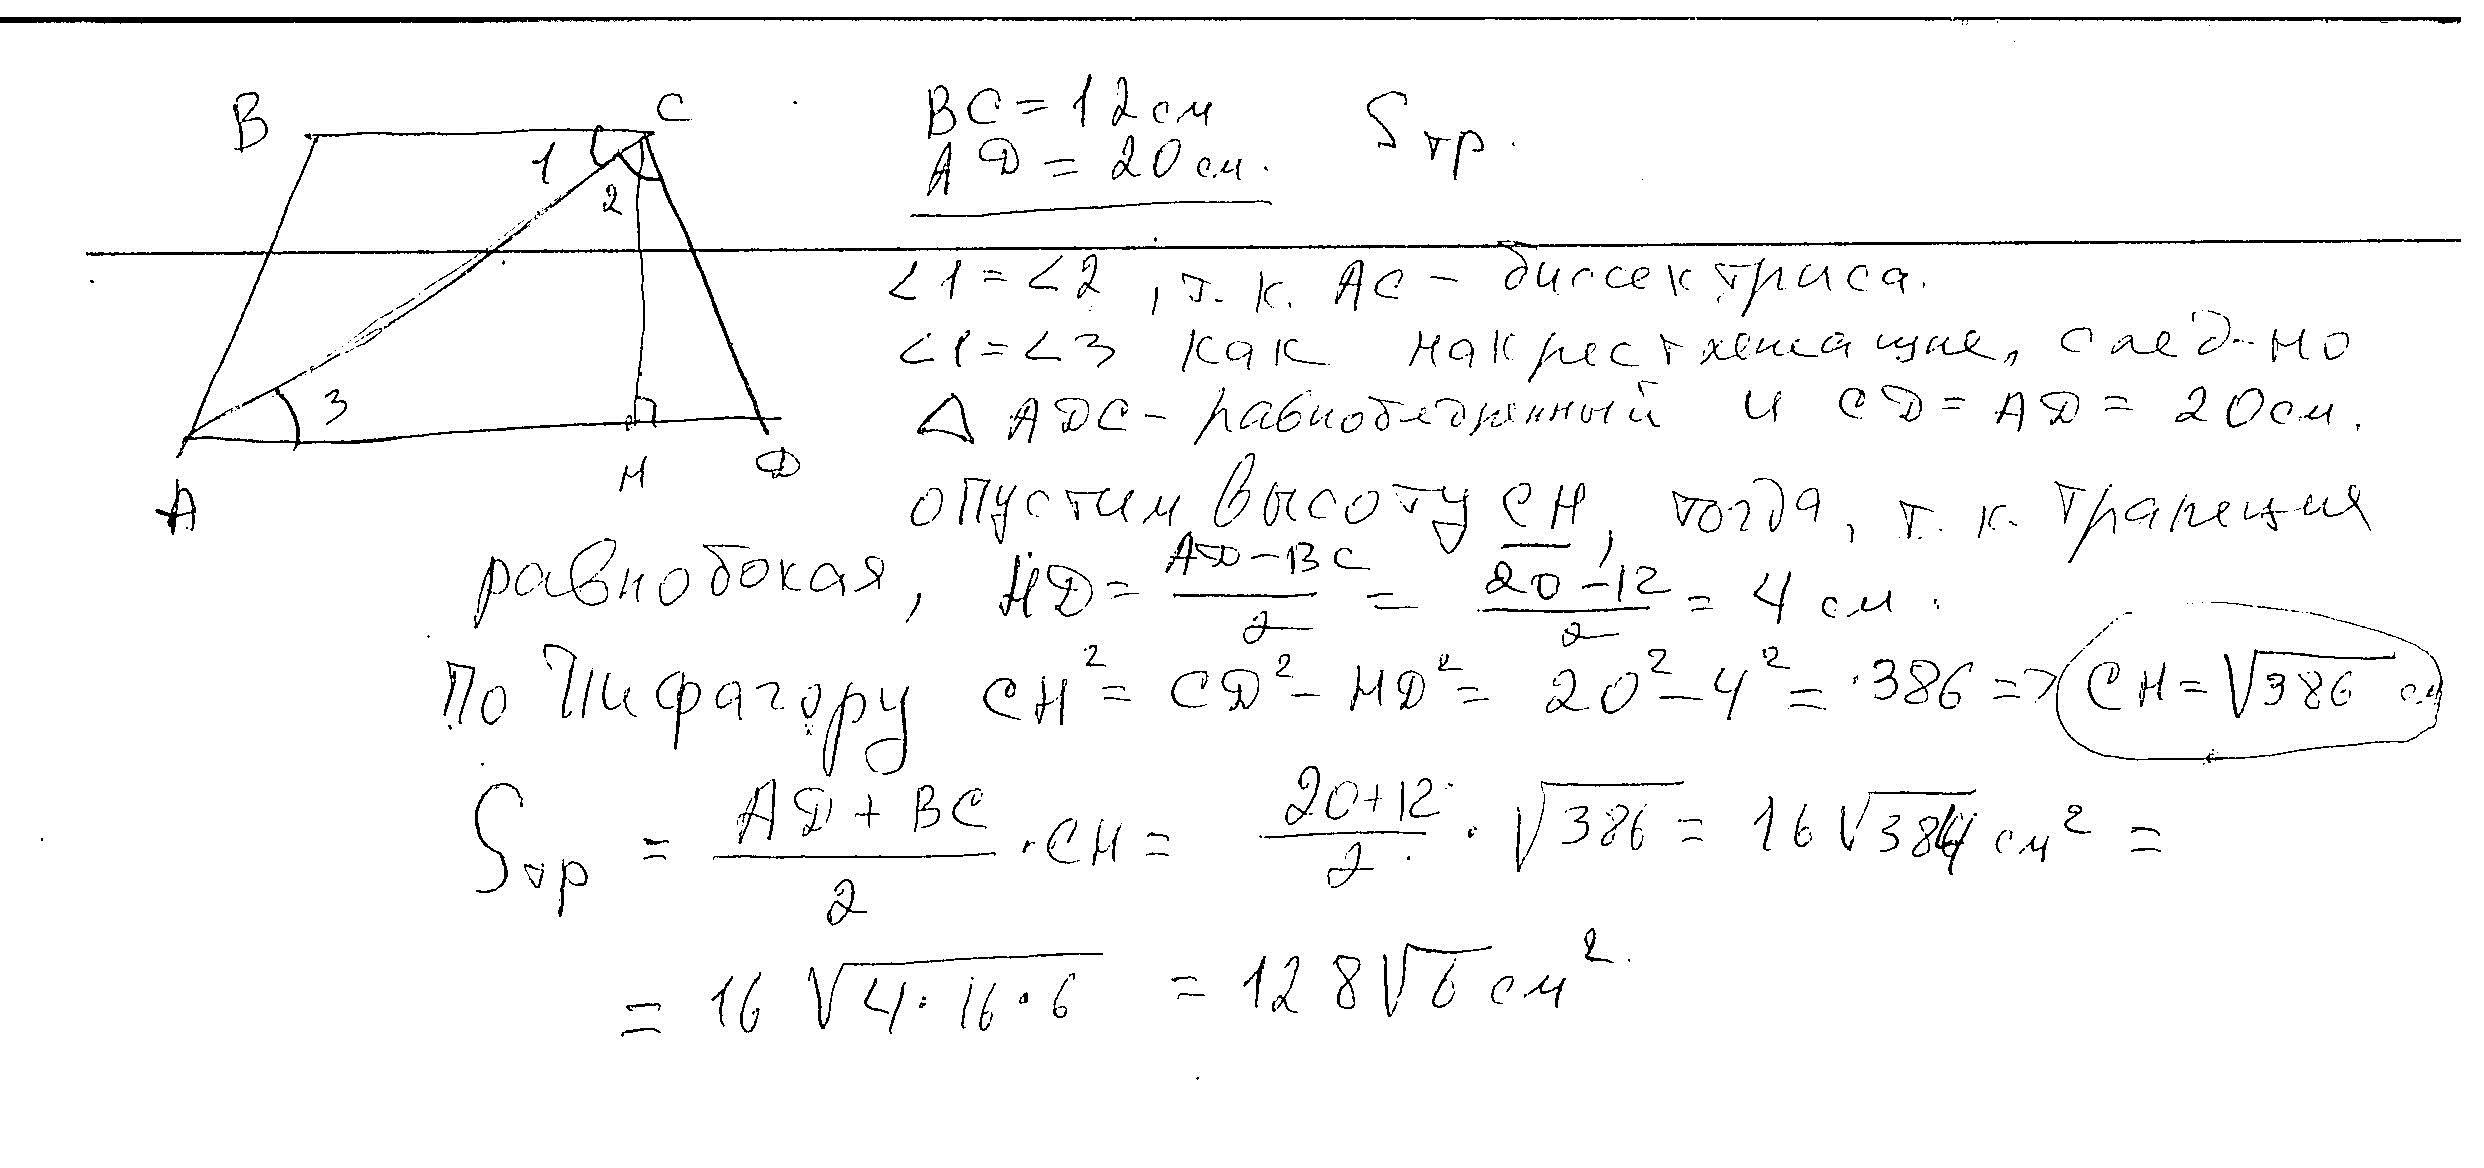 B C BC = 12 см S тр.
1 AD = 20 см.
2
∠1 = ∠2, т. к. AC – биссектриса.
3 ∠1 = ∠3 как накрестлежащие, след-но
△ ADC – равнобедренный и CD = AD = 20 см.
A H D опустим высоту CH, тогда, т. к. трапеция
равнобокая, HD = (AD – BC)/2 = (20 – 12)/2 = 4 см.
По Пифагору CH² = CD² – HD² = 20² – 4² = 386 => CH = √386 см
Sтр = (AD + BC)/2 · CH = (20+12)/2 · √386 = 16√384 см² =
= 16√(4·16·6) = 128√6 см².